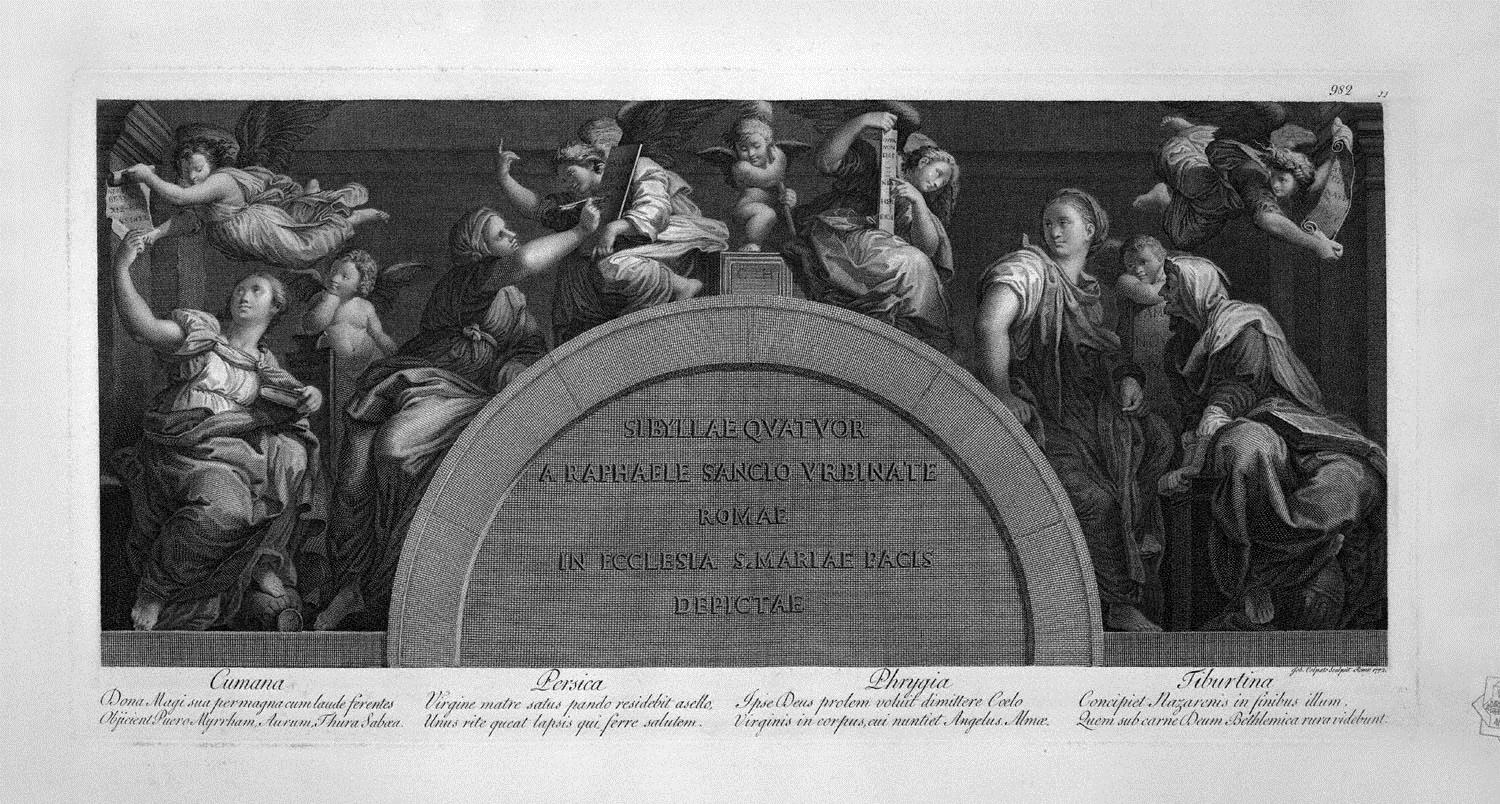 982
SIBYLLAE QVATVOR
A RAPHAELE SANCIO VRBINATE
ROMAE
IN ECCLESIA S. MARIAE PACIS
DEPICTAE
Joh. Volpato sculpsit Romæ 1772.
Cumana
Dona Magi sua permagna cum laude ferentes
Objicient Puero Myrrham, Aurum, Thura Sabæa.
Persica
Virgine matre satus pando residebit asello,
Unus rite queat lapsis qui ferre salutem.
Phrygia
Ipse Deus prolem voluit dimittere Cœlo
Virginis in corpus, cui nuntiet Angelus Almæ.
Tiburtina
Concipiet Nazarenis in finibus illum,
Quem sub carne Deum Bethlemica rura videbunt.